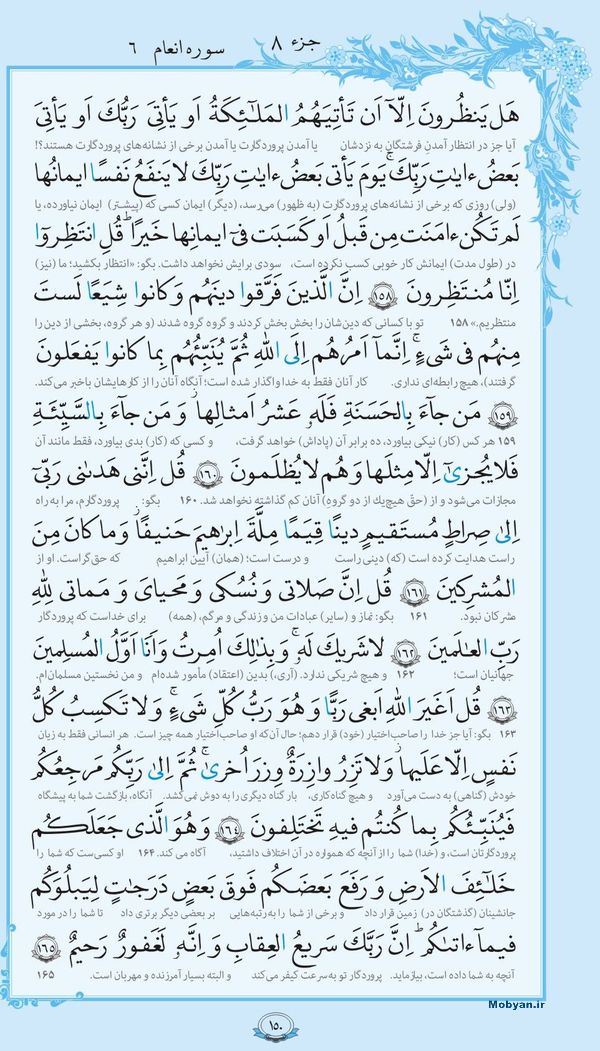 جزء ۸ سوره انعام ۶
هَل يَنظُرونَ اِلّآ اَن تَأتِيَهُمُ المَلٰٓئِكَةُ اَو يَأتِیَ رَبُّكَ اَو يَأتِیَ
آیا جز در انتظار آمدنِ فرشتگانِ به نزدشان یا آمدن پروردگارت یا آمدن برخی از نشانه‌های پروردگارت هستند؟!
بَعضُ ءایٰتِ رَبِّكَ ۗ يَومَ يَأتی بَعضُ ءایٰتِ رَبِّكَ لا يَنفَعُ نَفسًا ایمانُها
(ولی) روزی که برخی از نشانه‌های پروردگارت (به ظهور) می‌رسد، (دیگر) ایمان کسی که (پیشتر) ایمان نیاورده، یا
لَم تَكُن ءامَنَت مِن قَبلُ اَو كَسَبَت فی ایمانِها خَيرًا ۗ قُلِ انتَظِروا
در (طول مدت) ایمانش کار خوبی کسب نکرده است، سودی برایش نخواهد داشت. بگو: «انتظار بکشید؛ ما (نیز)
اِنّا مُنتَظِرونَ ﴿۱۵۸﴾ اِنَّ الَّذينَ فَرَّقوا دينَهُم وَ كانوا شِيَعًا لَستَ
منتظریم.» ۱۵۸ تو با کسانی که دین‌شان را بخش بخش کردند و گروه گروه شدند (و هر گروه، بخشی از دین را
مِنهُم فی شَیءٍ ۚ اِنَّمآ اَمرُهُم اِلَی اللهِ ثُمَّ يُنَبِّئُهُم بِما كانوا يَفعَلونَ
گرفتند)، هیچ رابطه‌ای نداری. کار آنان فقط به خدا واگذار شده است؛ آنگاه آنان را از کارهایشان باخبر می‌کند.
﴿۱۵۹﴾ مَن جآءَ بِالحَسَنَةِ فَلَهو عَشرُ اَمثالِها ۖ وَ مَن جآءَ بِالسَّيِّئَةِ
۱۵۹ هر کس (کار) نیکی بیاورد، ده برابر آن (پاداش) خواهد گرفت، و کسی که (کار) بدی بیاورد، فقط مانند آن
فَلا يُجزیٰٓ اِلّا مِثلَها وَ هُم لا يُظلَمونَ ﴿۱۶۰﴾ قُل اِنَّنی هَدٰنی رَبّی
مجازات می‌شود و از (حقّ هیچ‌یك از دو گروهِ) آنان کم گذاشته نخواهد شد. ۱۶۰ بگو: پروردگارم، مرا به راه
اِلیٰ صِراطٍ مُستَقيمٍ دينًا قِيَمًا مِلَّةَ اِبرٰهيمَ حَنيفًا ۚ وَ ما كانَ مِنَ
راست هدایت کرده است (که) دینی راست و درست است؛ (همان) آیین ابراهیم که حق‌گراست. او از
المُشرِكينَ ﴿۱۶۱﴾ قُل اِنَّ صَلاتی وَ نُسُكی وَ مَحيایَ وَ مَماتی لِلّٰهِ
مشرکان نبود. ۱۶۱ بگو: نماز و (سایر) عبادات من و زندگی و مرگم، (همه) برای خداست که پروردگار
رَبِّ العٰلَمينَ ﴿۱۶۲﴾ لا شَريكَ لَهو ۖ وَ بِذٰلِكَ اُمِرتُ وَ اَنَا اَوَّلُ المُسلِمينَ
جهانیان است؛ ۱۶۲ و هیچ شریکی ندارد. (آری،) بدین (اعتقاد) مأمور شده‌ام و من نخستین مسلمان‌ام.
﴿۱۶۳﴾ قُل اَغَيرَ اللهِ اَبغی رَبًّا وَ هُوَ رَبُّ كُلِّ شَیءٍ ۚ وَ لا تَكسِبُ كُلُّ
۱۶۳ بگو: آیا جز خدا را صاحب‌اختیار (خود) قرار دهم؛ حال آن‌که او صاحب‌اختیار همه چیز است. هر انسانی فقط به زیان
نَفسٍ اِلّا عَلَيها ۚ وَ لا تَزِرُ وازِرَةٌ وِزرَ اُخریٰ ۚ ثُمَّ اِلیٰ رَبِّكُم مَرجِعُكُم
خودش (گناهی) به دست می‌آورد و هیچ گناه‌کاری، بار گناه دیگری را به دوش نمی‌کشد. آنگاه، بازگشت شما به پیشگاه
فَيُنَبِّئُكُم بِما كُنتُم فيهِ تَختَلِفونَ ﴿۱۶۴﴾ وَ هُوَ الَّذی جَعَلَكُم
پروردگارتان است، و (خدا) شما را از آنچه که همواره در آن اختلاف داشتید، آگاه می کند. ۱۶۴ او کسی‌ست که شما را
خَلٰٓئِفَ الاَرضِ وَ رَفَعَ بَعضَكُم فَوقَ بَعضٍ دَرَجٰتٍ لِيَبلُوَكُم
جانشینان (گذشتگان در) زمین قرار داد و برخی از شما را به رتبه‌هایی بر بعضی دیگر برتری داد تا شما را در مورد
فی مآ ءاتٰكُم ۗ اِنَّ رَبَّكَ سَريعُ العِقابِ وَ اِنَّهو لَغَفورٌ رَحيمٌ ﴿۱۶۵﴾
آنچه به شما داده است، بیازماید. پروردگار تو به‌سرعت کیفر می‌کند و البته بسیار آمرزنده و مهربان است. ۱۶۵
Mobyan.ir
۱۵۰